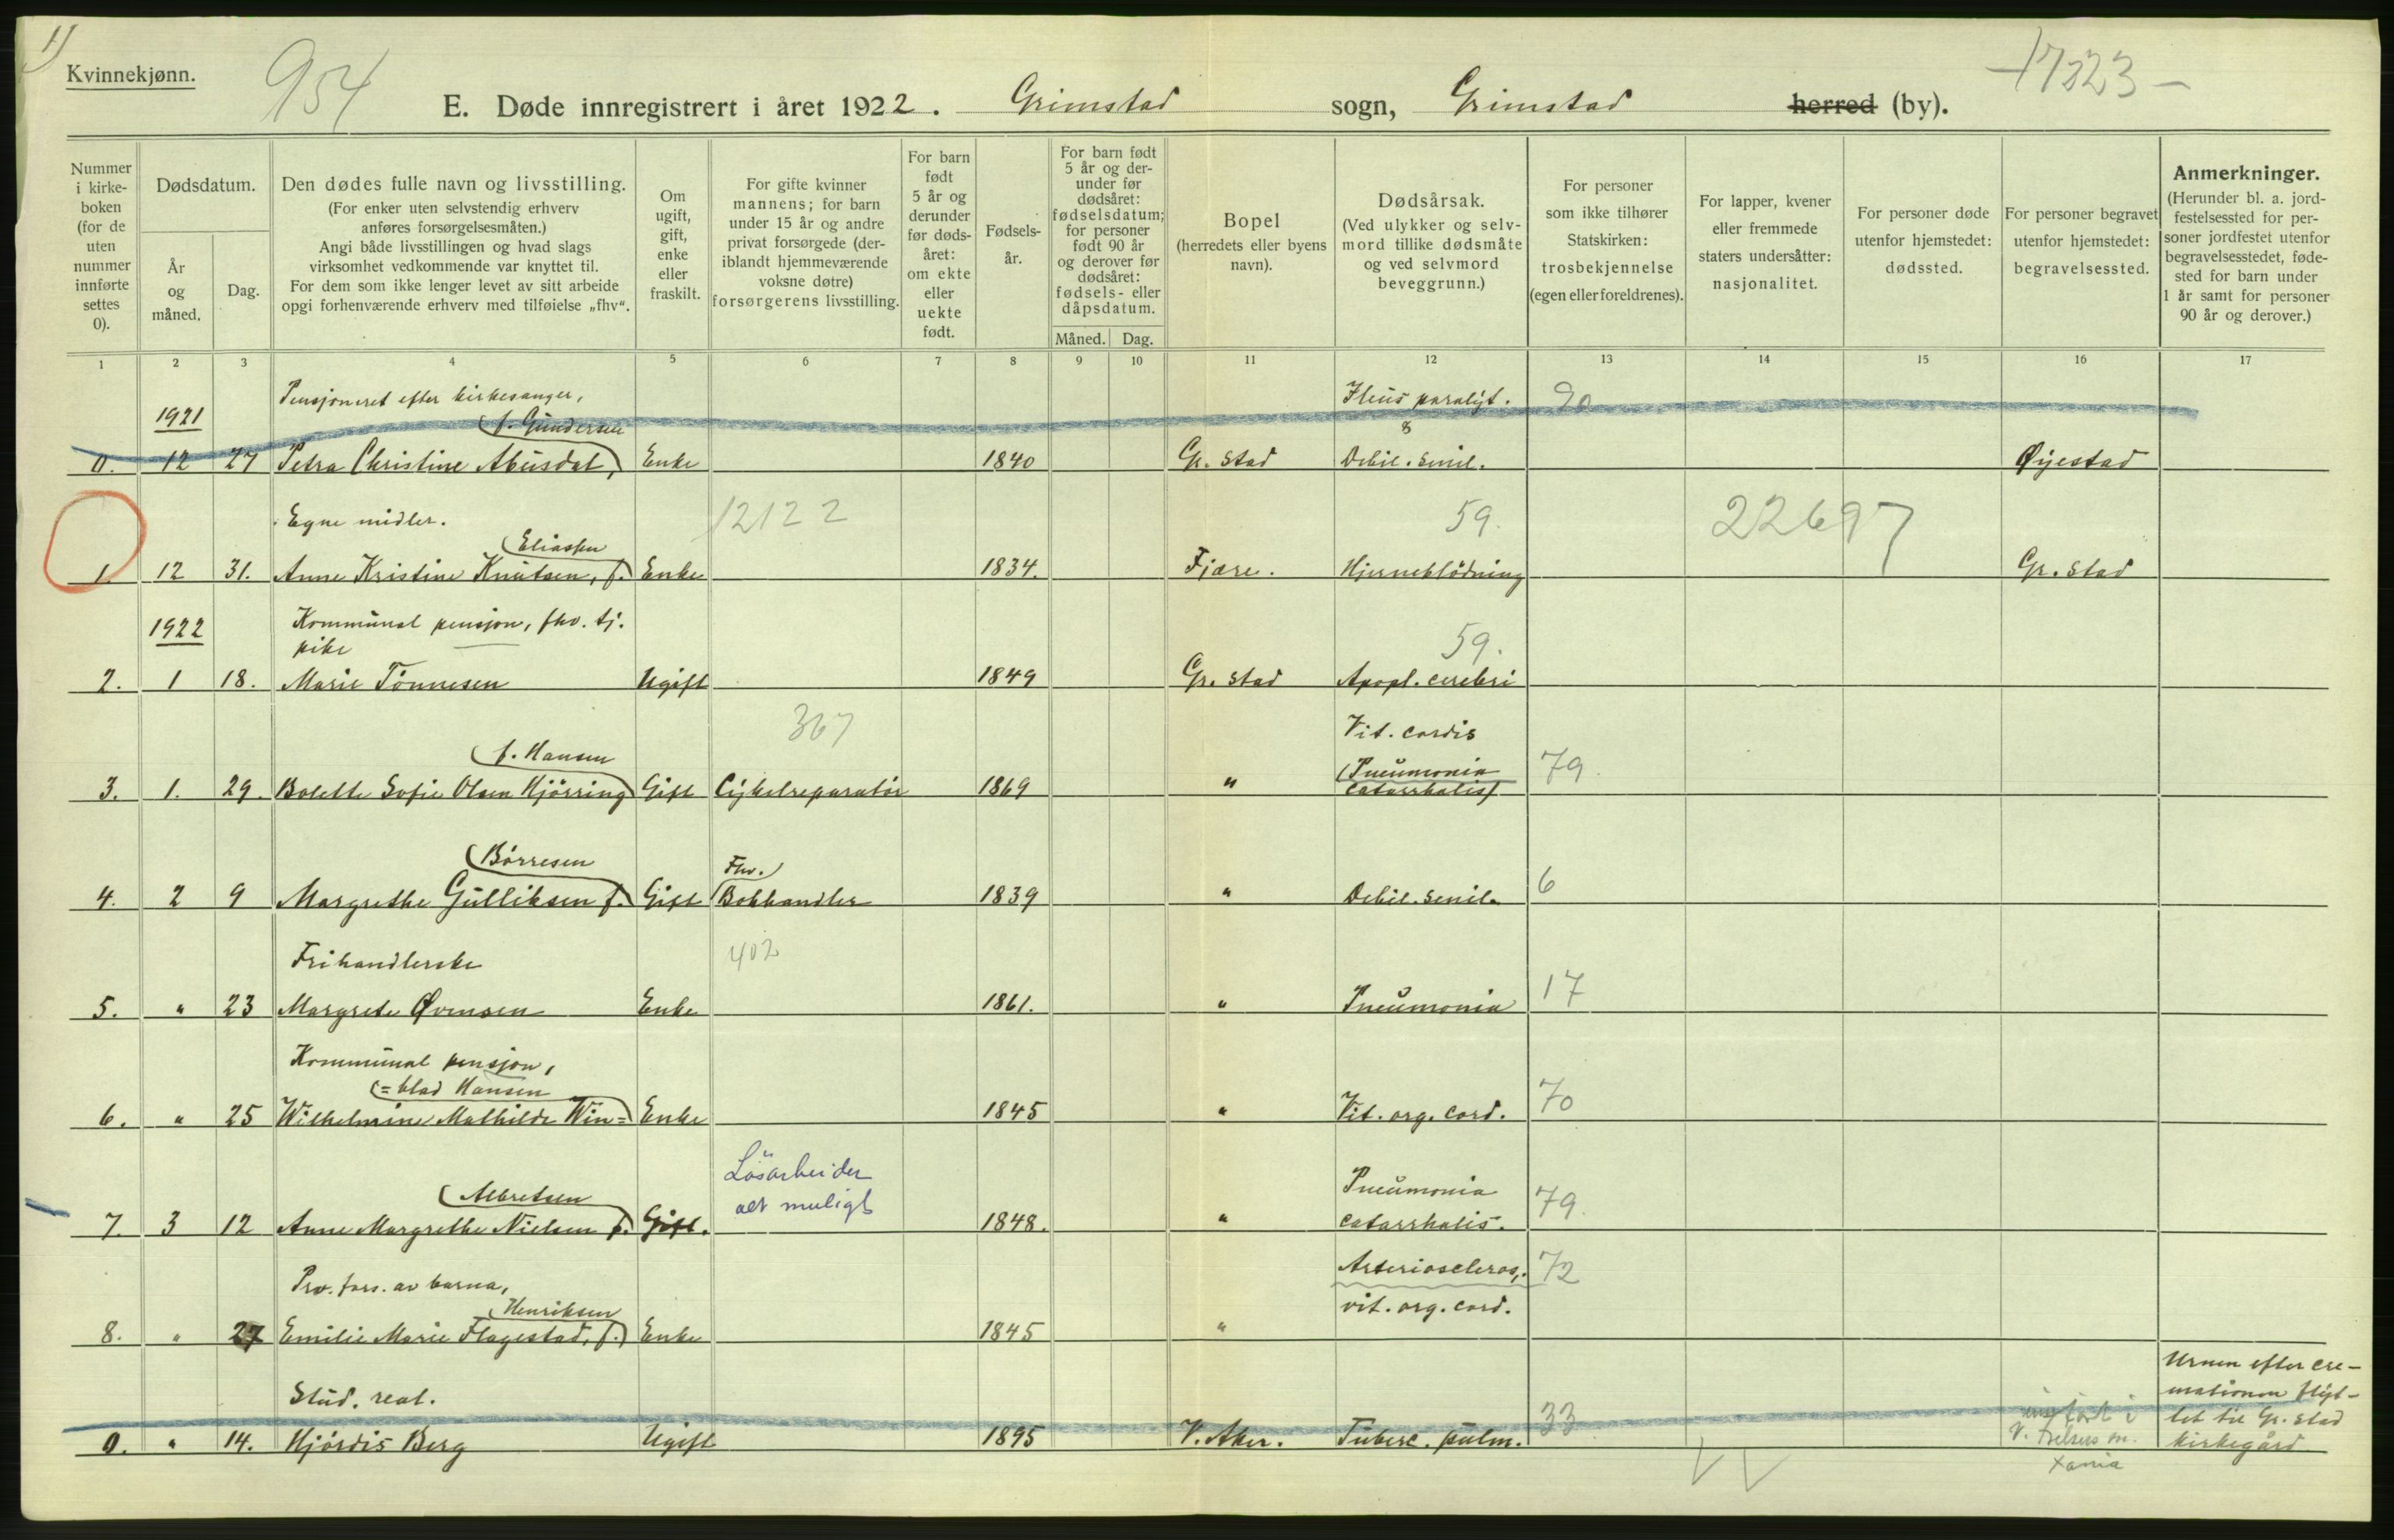 1)
Kvinnekjønn.
954
17323
E. Døde innregistrert i året 1922. Grimstad sogn, Grimstad herred (by).
Nummer i kirke-boken (for de uten nummer innførte settes 0).
Dødsdatum.
År og måned.
Dag.
Den dødes fulle navn og livsstilling.
(For enker uten selvstendig erhverv
anføres forsørgelsesmåten.)
Angi både livsstillingen og hvad slags
virksomhet vedkommende var knyttet til.
For dem som ikke lenger levet av sitt arbeide
opgi forhenværende erhverv med tilføielse „fhv“.
Om ugift, gift, enke eller fraskilt.
For gifte kvinner
mannens; for barn
under 15 år og andre
privat forsørgede (der-
iblandt hjemmeværende
voksne døtre)
forsørgerens livsstilling.
For barn født 5 år og derunder før døds-året: om ekte eller uekte født.
Fødsels-år.
For barn født
5 år og der-
under før
dødsåret:
fødselsdatum;
for personer
født 90 år
og derover før
dødsåret:
fødsels- eller
dåpsdatum.
Måned. Dag.
Bopel
(herredets eller byens
navn).
Dødsårsak.
(Ved ulykker og selv-
mord tillike dødsmåte
og ved selvmord
beveggrunn.)
For personer
som ikke tilhører
Statskirken:
trosbekjennelse
(egen eller foreldrenes).
For lapper, kvener
eller fremmede
staters undersåtter:
nasjonalitet.
For personer døde
utenfor hjemstedet:
dødssted.
For personer begravet
utenfor hjemstedet:
begravelsessted.
Anmerkninger.
(Herunder bl. a. jord-
festelsessted for per-
soner jordfestet utenfor
begravelsesstedet, føde-
sted for barn under
1 år samt for personer
90 år og derover.)
1 2 3 4 5 6 7 8 9 10 11 12 13 14 15 16 17
Pensjoneret efter kirkesanger, Ileus paralyt. 90
1921 f. Gundersen
0. 12 27 Petra Christine Abusdal, Enke 1840 Gr.stad Debil. senil. Øyestad
Egne midler. 12122 59. 22697
Eliassen
1. 12 31. Anne Kristine Knutsen, f. Enke 1834. Fjære. Hjerneblödning Gr.stad
1922 Kommunal pensjon, fhv. tj.
pike 59.
2. 1 18. Marie Tönnesen Ugift 1849 Gr.stad Apopl. cerebri
367 Vit. cordis
f. Hansen (Pneumonia 79.
3. 1. 29. Bolette Sofie Olsen Hjörring Gift Cykelreparatör 1869 " catarrhalis)
(Börresen Fhv. 6
4. 2 9 Margrethe Gulliksen f. Gift Bokhandler 1839 " Debil. senil.
Frihandlerske 402 17
5. " 23 Margrete Øvensen Enke 1861. " Pneumonia
Kommunal pensjon,
(= blad Hansen 70
6. " 25 Wilhelmine Mathilde Win= Enke 1845 " Vit. org. cord.
Lösarbeider Pneumonia
(Albretsen alt muligt 79.
7. 3 12 Anne Margrethe Nielsen f. Gift. 1848. " catarrhalis.
Arterioscleros,. 72
Prv. fors. av barna,
Henriksen vit. org. cord.
8. " 27 Emilie Marie Flagestad, f. Enke 1845 "
Urnen efter cre-
Stud. real. mationen flyt-
33 innført i tet til Gr.stad
0. " 14. Hjördis Berg Ugift 1895 V. Aker. Tuberc. pulm. V. kirkegård
Xania